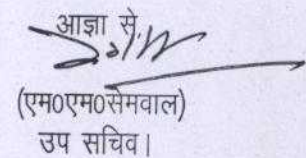 आज्ञा से,
(एम०एम०सेमवाल)
उप सचिव।